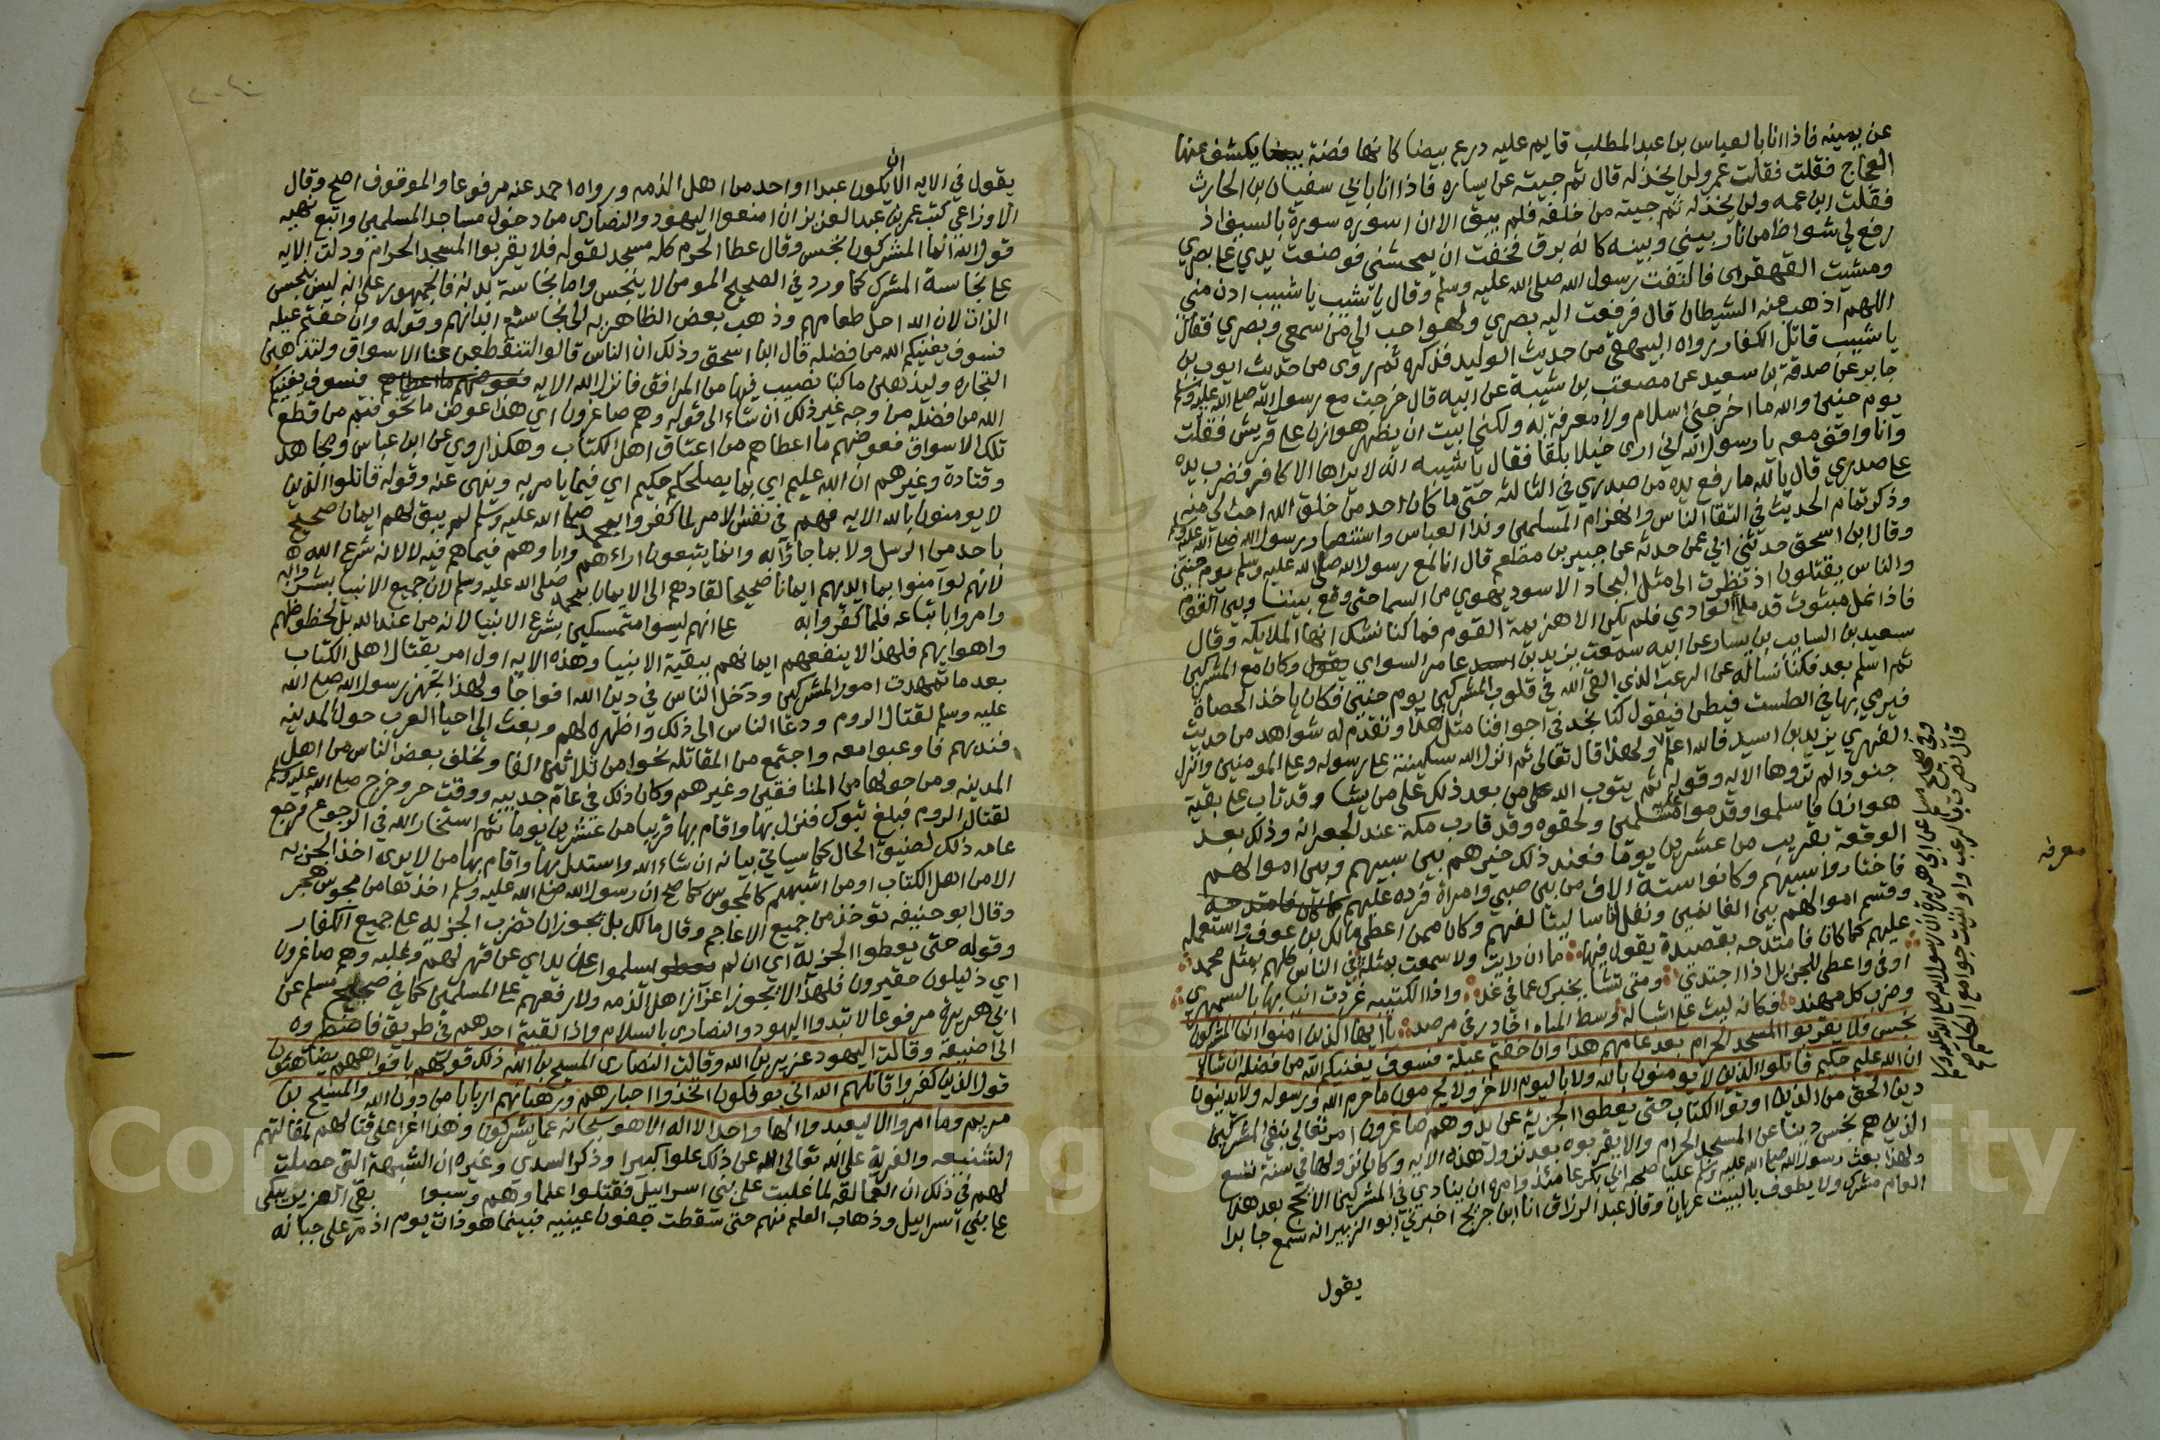 عن يمينه فاذا انا بالعباس بن عبد المطلب قايم عليه درع بيضا كانها فضة يكشف عنها
العجاج فقلت عمه ولن يخذله قال ثم جيته عن يساره فاذا انا بابي سفيان بن الحارث
فقلت ابن عمه ولن يخذله ثم جيته من خلفه فلم يبق الا ان اسوره سورة بالسيف اذ
رفع لي شواظ من نار بيني وبينه كانه برق فخفت ان يمحشني فوضعت يدي على بصري
ومشيت القهقرى فالتفت رسول الله صلى الله عليه وسلم وقال يا شيب يا شيب ادن مني
اللهم اذهب عنه الشيطان قال فرفعت اليه بصري ولهو احب الي من سمعي وبصري فقال
يا شيب قاتل الكفار رواه البيهقي من حديث الوليد فذكره ثم روى من حديث ايوب بن
جابر عن صدقة بن سعيد عن مصعب بن شيبة عن ابيه قال خرجت مع رسول الله صلى الله عليه وسلم
يوم حنين والله ما اخرجني اسلام ولا معرفة به ولكني ابيت ان يظهر هوازن على قريش فقلت
وانا واقف معه يا رسول الله اني ارى خيلا بلقا فقال يا شيبه انه لا يراها الا كافر فضرب يده
على صدري قال بالله ما رفع يده من صدري في الثالثة حتى ما كان احد من خلق الله احب الي منه
وذكر تمام الحديث في التقا الناس وانهزام المسلمين وندا العباس واستنصار رسول الله صلى الله عليه وسلم
وقال ابن اسحق حدثني ابي عمن حدثه عن جبير بن مطعم قال انا لمع رسول الله صلى الله عليه وسلم يوم حنين
والناس يقتتلون اذ نظرت الى مثل البجاد الاسود يهوي من السما حتى وقع بيننا وبين القوم
فاذا نمل مبثوث قد ملا الوادي فلم يكن الا هزيمة القوم فما كنا نشك انها الملايكه وقال
سعيد بن السايب بن يسار عن ابيه سمعت يزيد بن عامر السواي وكان مع المشركين
ثم اسلم بعد فكنا نساله عن الرعب الذي القى الله في قلوب المشركين يوم حنين فكان ياخذ الحصاة
فيرمي بها في الطست فيطن فيقول كنا نجد في اجوافنا مثل هذا وتقدم له شواهد من حديث
الفهري يزيد بن اسيد فالله اعلم ولهذا قال تعالى ثم انزل الله سكينته على رسوله وعلى المومنين وانزل
جنودا لم تروها الايه وقوله ثم يتوب الله من بعد ذلك على من يشا وقد تاب على بقية
هوازن فاسلموا وقدموا عليه مسلمين ولحقوه وقد قارب مكة عند الجعرانه وذلك بعد
الوقعة بقريب من عشرين يوما فعند ذلك خيرهم بين سبيهم وبين اموالهم
فاختاروا سبيهم وكانوا ستة الاف من بين صبي وامراة فرده عليهم
وقسم اموالهم بين الغانمين ونفل اناسا ليتالفهم وكان ممن اعطى مالك بن عوف واستعمله
عليهم كما كان فامتدحه بقصيدة يقول فيها ما ان رايت ولا سمعت بمثله في الناس كلهم بمثل محمد
اوفى واعطى للجزيل اذا اجتدى ومتى تشا يخبرك عما في غد واذا الكتيبه غردت انيابها بالسمهري
وضرب كل مهند فكانه ليث على اشباله وسط المباه اخادر في مرصد يا ايها الذين امنوا انما المشركون
نجس فلا يقربوا المسجد الحرام بعد عامهم هذا وان خفتم عيلة فسوف يغنيكم الله من فضله ان شاء
ان الله عليم حكيم قاتلوا الذين لا يومنون بالله ولا باليوم الاخر ولا يحرمون ما حرم الله ورسوله ولا يدينون
دين الحق من الذين اوتوا الكتاب حتى يعطوا الجزية عن يد وهم صاغرون امر تعالى بنفي المشركين
الذين هم نجس دينا عن المسجد الحرام والا يقربوه بعد نزول هذه الايه وكان نزولها في سنة تسع
ولهذا بعث رسول الله صلى الله عليه وسلم عليا صحبة ابي بكر عامئذ وامره ان ينادي في المشركين الا يحج بعد هذا
العام مشرك ولا يطوف بالبيت عريان وقال عبد الرزاق انا ابن جريج اخبرني ابو الزبير انه سمع جابرا
يقول
وفي صحيح مسلم عن ابي هريرة ان رسول الله صلى الله عليه وسلم
قال نصرت بالرعب واوتيت جوامع الكلم
معرفه
يقول في الايه الا ان يكون عبدا او احد من اهل الذمه ورواه احمد عنه مرفوعا والموقوف اصح وقال
الاوزاعي كتب عمر بن عبد العزيز ان امنعوا اليهود والنصارى من دخول مساجد المسلمين واتبع نهيه
قول الله انما المشركون نجس وقال عطا الحرم كله مسجد لقوله فلا يقربوا المسجد الحرام ودلت الايه
على نجاسة المشرك كما ورد في الصحيح المومن لا ينجس واما نجاسة بدنه فالجمهور على انه ليس بنجس
الذات لان الله احل طعامهم وذهب بعض الظاهريه الى نجاسة ابدانهم وقوله وان خفتم عيله
فسوف يغنيكم الله من فضله قال ابن اسحق وذلك ان الناس قالوا لتنقطعن عنا الاسواق ولتذهبن
التجاره وليذهبن ما كنا نصيب فيها من المرافق فانزل الله الايه فسوف يغنيكم
الله من فضله من وجه غير ذلك ان شاء الى قوله وهم صاغرون اي هذا عوض ما تخوفتم من قطع
تلك الاسواق فعوضهم ما اعطاهم من اعناق اهل الكتاب وهكذا روي عن ابن عباس ومجاهد
وقتادة وغيرهم ان الله عليم اي بما يصلحكم حكيم اي فيما يامر به وينهى عنه وقوله قاتلوا الذين
لا يومنون بالله الايه فهم في نفس الامر لما كفروا بمحمد صلى الله عليه وسلم لم يبق لهم ايمان صحيح
باحد من الرسل ولا بما جاؤا به وانما يتبعون اراءهم واباوهم فيما هم فيه لا لانه شرع الله
لانهم لو امنوا بما بايديهم ايمانا صحيحا لقادهم الى الايمان بمحمد صلى الله عليه وسلم لان جميع الانبيا بشروا به
وامروا باتباعه فلما كفروا به علم انهم ليسوا متمسكين بشرع الانبيا لانه من عند الله بل لحظوظهم
واهوايهم فلهذا لا ينفعهم ايمانهم ببقية الانبيا وهذه الايه اول امر بقتال اهل الكتاب
بعد ما تمهدت امور المشركين ودخل الناس في دين الله افواجا ولهذا تجهز رسول الله صلى الله
عليه وسلم لقتال الروم ودعا الناس الى ذلك واظهره لهم وبعث الى احيا العرب حول المدينه
فندبهم فاوعبوا معه واجتمع من المقاتله نحوا من ثلاثين الفا وتخلف بعض الناس من اهل
المدينه ومن حولها من المنافقين وغيرهم وكان ذلك في عام جدب ووقت حر وخرج صلى الله عليه وسلم
لقتال الروم فبلغ تبوك فنزل بها واقام بها قريبا من عشرين يوما ثم استخار الله في الرجوع فرجع
عامه ذلك لضيق الحال كما سياتي بيانه ان شاء الله واستدل بها من لا يرى اخذ الجزيه
الا من اهل الكتاب او من اشبههم كالمجوس كما صح ان رسول الله صلى الله عليه وسلم اخذها من مجوس هجر
وقال ابو حنيفه توخذ من جميع الاعاجم وقال مالك بل يجوز ان تضرب الجزيه على جميع الكفار
وقوله حتى يعطوا الجزية اي ان لم يسلموا عن يد اي عن قهر لهم وغلبه وهم صاغرون
اي ذليلون حقيرون فلهذا لا يجوز اعزاز اهل الذمه ولا رفعهم على المسلمين كما في صحيح مسلم عن
ابي هريرة مرفوعا لا تبدوا اليهود والنصارى بالسلام واذا لقيتم احدهم في طريق فاضطروه
الى اضيقه وقالت اليهود عزير بن الله وقالت النصارى المسيح بن الله ذلك قولهم بافواههم يضاهئون
قول الذين كفروا قاتلهم الله انى يوفكون اتخذوا احبارهم ورهبانهم اربابا من دون الله والمسيح بن
مريم وما امروا الا ليعبدوا الها واحدا لا اله الا هو سبحانه عما يشركون وهذا اغرا على قتالهم لمقالتهم
الشنيعه والفرية على الله تعالى الله عن ذلك علوا كبيرا وذكر السدي وغيره ان الشبهة التي حصلت
لهم في ذلك ان العمالقه لما غلبت على بني اسراييل فقتلوا علماوهم وسبوا بقي العزير يبكي
على بني اسراييل وذهاب العلم منهم حتى سقطت جفون عينيه فبينما هو ذات يوم اذ مر على جبانه